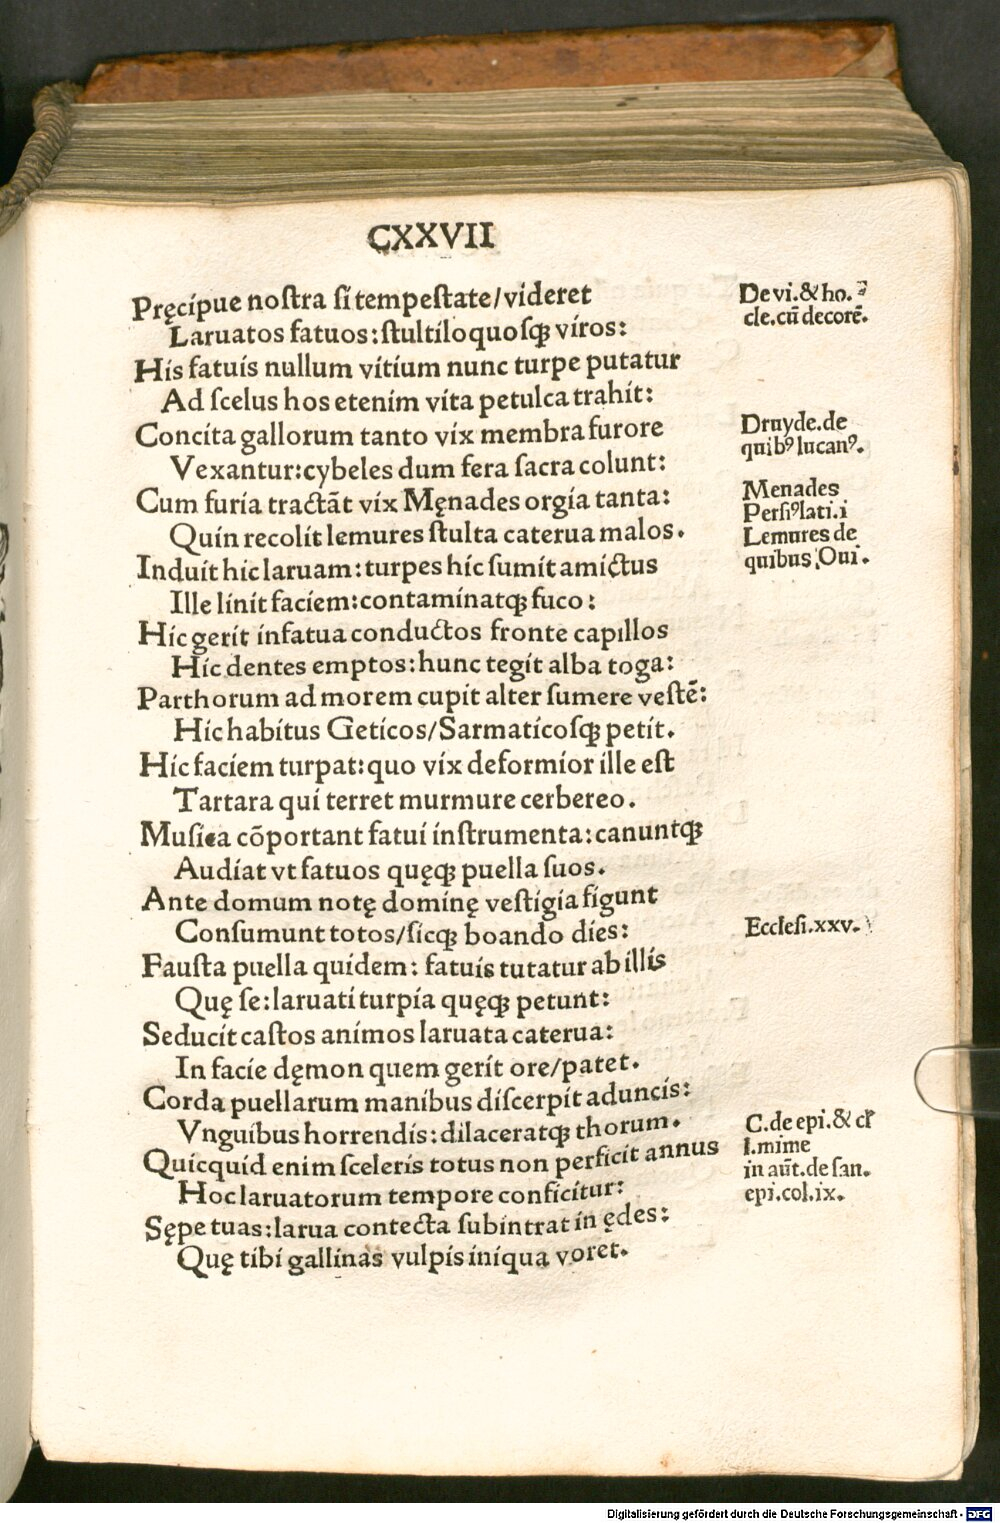 CXXVII
Pręcipue noſtra ſi tempeſtate/videret
Laruatos fatuos:ſtultiloquoſqꝫ viros:
His fatuis nullum vitium nunc turpe putatur
Ad ſcelus hos etenim vita petulca trahit:
Concita gallorum tanto vix membra furore
Vexantur:cybeles dum fera ſacra colunt:
Cum furia tractāt vix Męnades orgia tanta:
Quin recolit lemures ſtulta caterua malos.
Induit hic laruam:turpes hic ſumit amictus
Ille linit faciem:contaminatqꝫ fuco:
Hic gerit infatua conductos fronte capillos
Hic dentes emptos:hunc tegit alba toga:
Parthorum ad morem cupit alter ſumere veſtē:
Hic habitus Geticos/Sarmaticoſqꝫ petit.
Hic faciem turpat:quo vix deformior ille eſt
Tartara qui terret murmure cerbereo.
Muſica cōportant fatui inſtrumenta:canuntqꝫ
Audiat vt fatuos quęqꝫ puella ſuos.
Ante domum notę dominę veſtigia figunt
Conſumunt totos/ſicqꝫ boando dies:
Fauſta puella quidem: fatuis tutatur ab illis
Quę ſe:laruati turpia quęqꝫ petunt:
Seducit caſtos animos laruata caterua:
In facie dęmon quem gerit ore/patet.
Corda puellarum manibus diſcerpit aduncis:
Vnguibus horrendis:dilaceratqꝫ thorum.
Quicquid enim ſceleris totus non perficit annus
Hoc laruatorum tempore conficitur:
Sępe tuas:larua contecta ſubintrat in ędes:
Quę tibi gallinas vulpis iniqua voret.
De vi.& ho.
cle.cū decorē.
Druyde.de
quibꝰ lucanꝰ.
Menades
Perſiꝰlati.i
Lemures de
quibus Oui.
Eccleſi.xxv.
C.de epi.& cł
l.mime
in aūt.de ſan.
epi.col.ix.
Digitalisierung gefördert durch die Deutsche Forschungsgemeinschaft - DFG